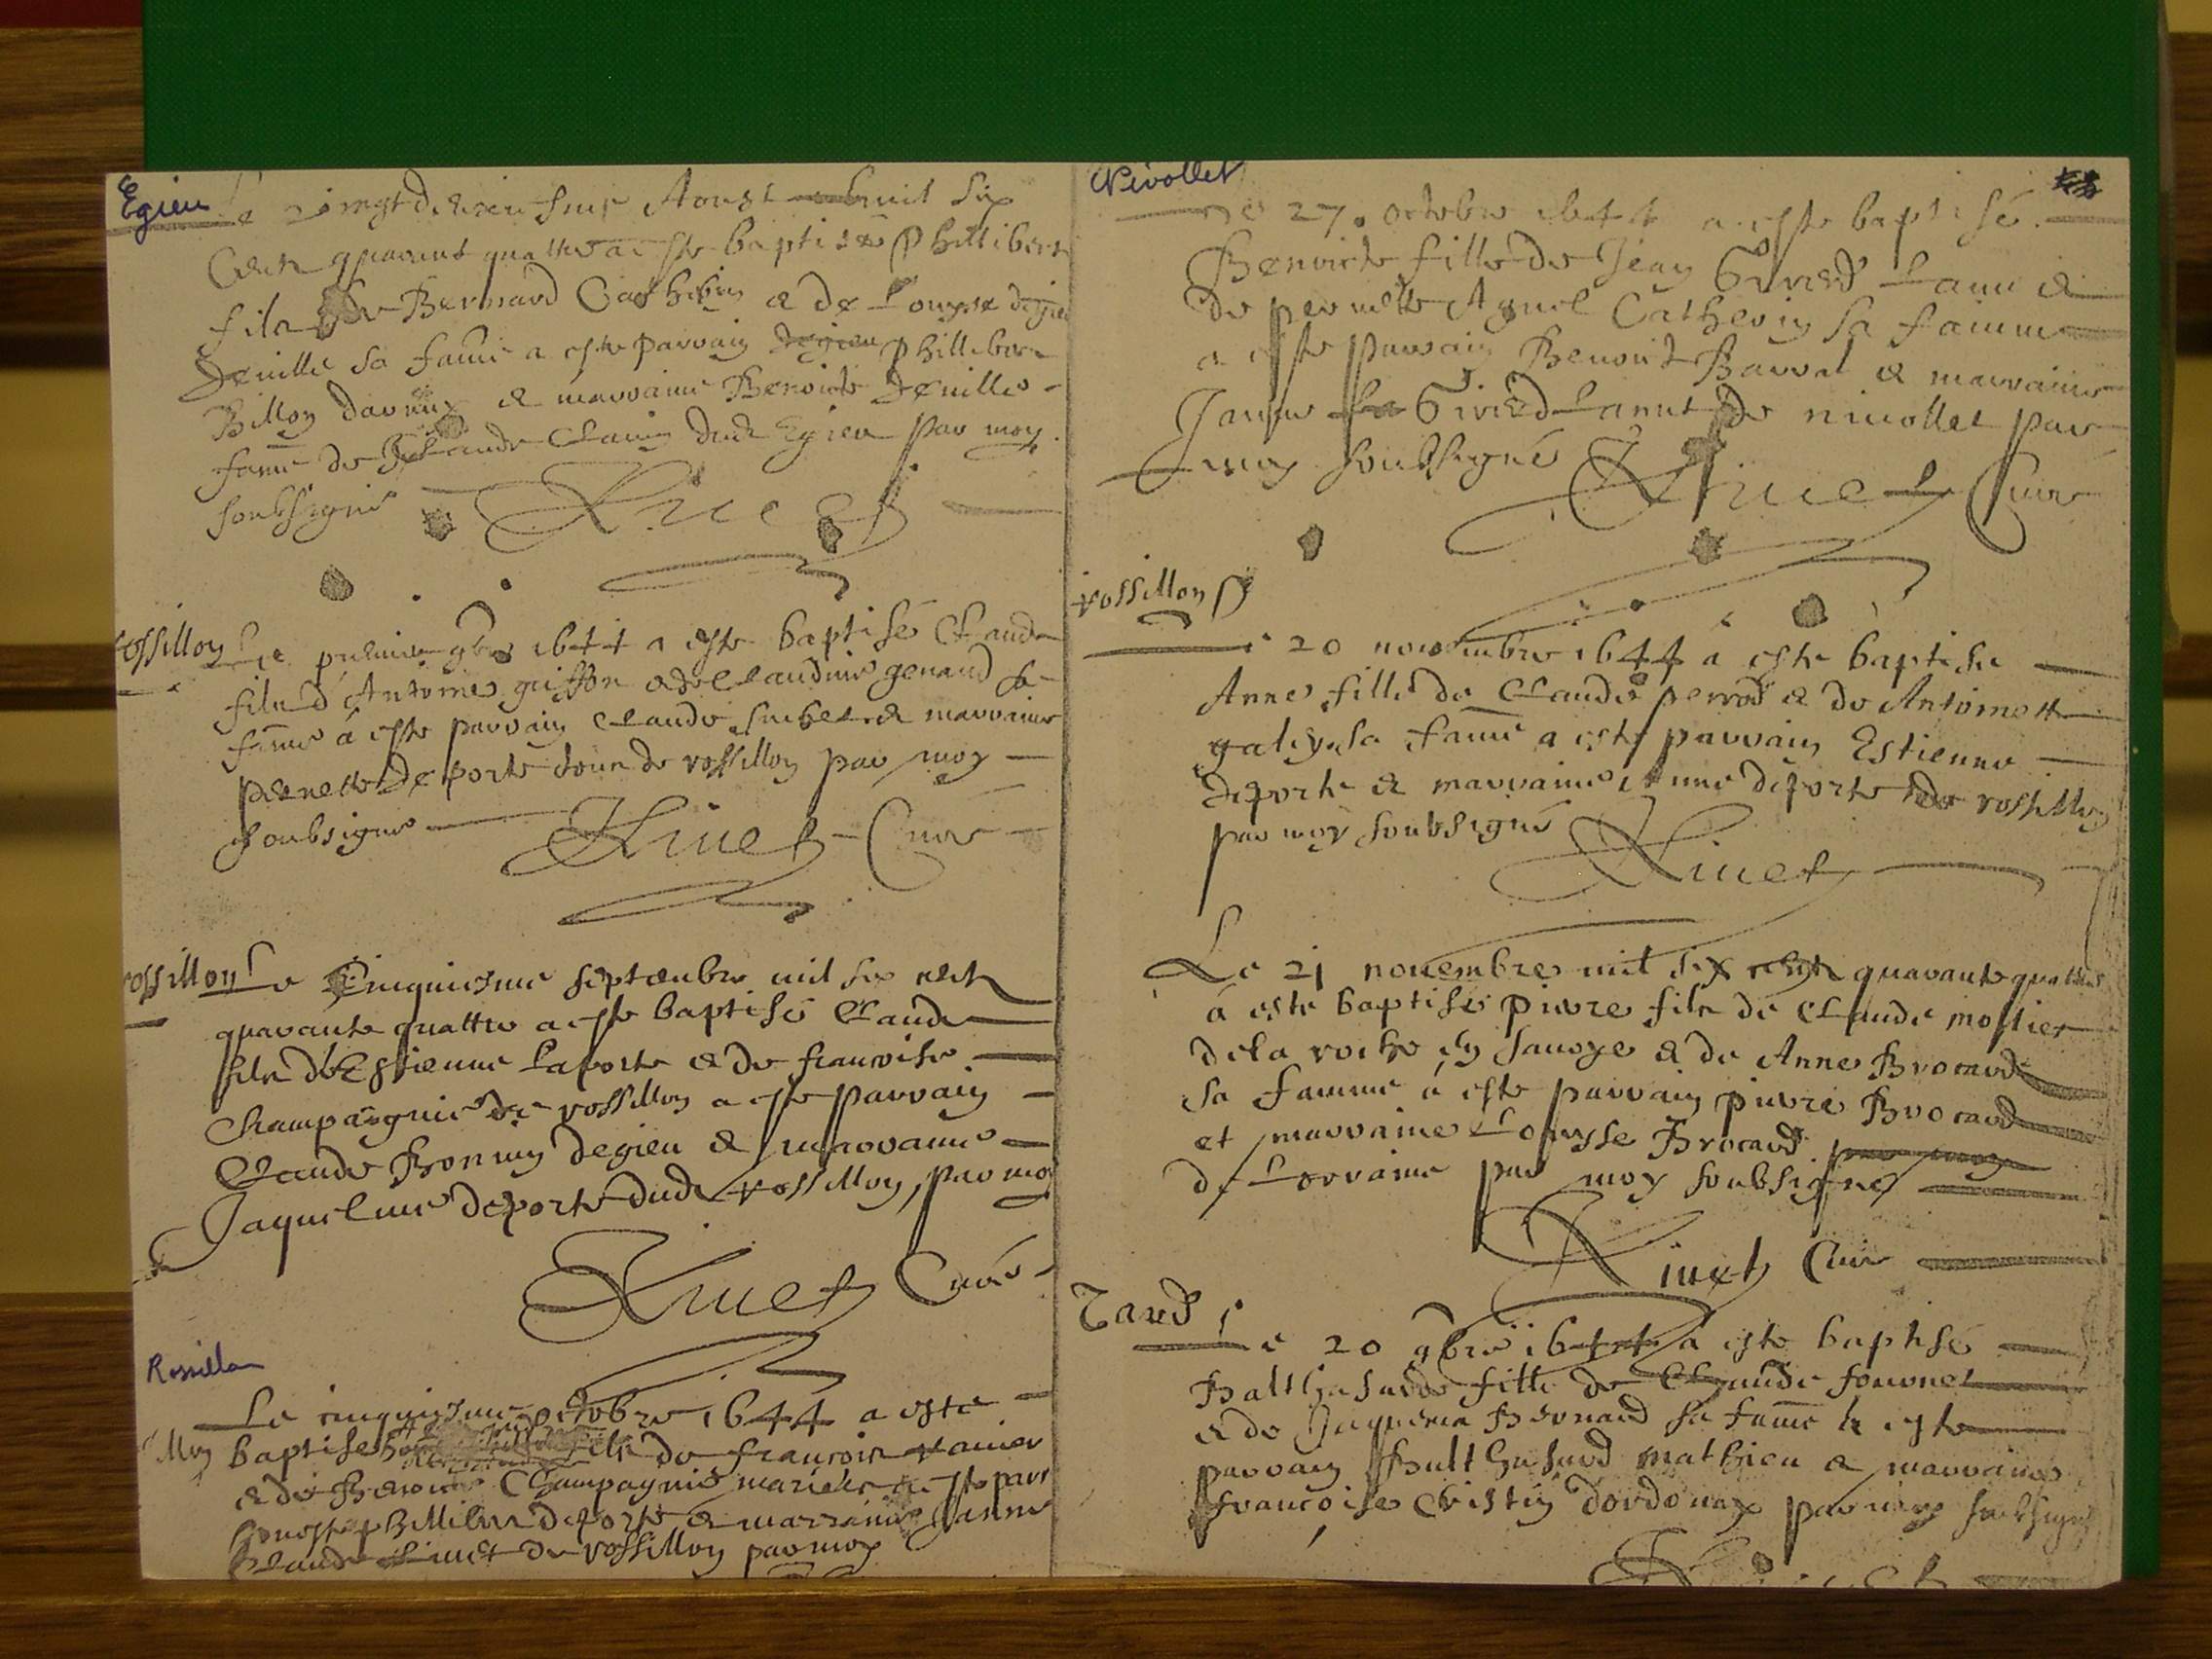 Egieu
Le vingtdeuxiesme Aoust mil six
Cents quarante quattre a este baptisé Phillibert
fils de Bernard Cathin & de Louyse degieu
Deville sa fame a este parrain Phillibert
Billon & marraine Benoiste Deville
fame de Claude dud Egieu par moy
soubsigné Rivet
rossillon
Le premier 9bre 1644 a este baptisé Claude
fils d'Antoine griffon & de Claudine genand sa
fame a este parrain Claude & marraine
pernette Deporte tous de rossillon par moy
soubsigné Rivet Curé
rossillon
Le Cinquiesme septembre mil six cents
quarante quattre a este baptisé Claude
fils d'Estienne Laporte & de francoise
Champagnie de rossillon a este parrain
Claude Bonnin degieu & marraine
Jaqueline deporte dud rossillon, par moy
Rivet Curé
Rossillon
Le cinquiesme octobre 1644 a este
baptisé fils de francois
& de Benoiste Champagnie mariés a este parr
honeste phillibert deporte & marraine Janne
Claude de rossillon par moy
Nivollet
Le 27. octobre 1644 a este baptisé
Benoiste fille de Jean Girerd Lamu &
de pernette Agnel Catherin sa famme
a este parrain Benoist Barral & marraine
Janne Girerd de nivollet par
moy soubsigné Rivet Curé
rossillon
Le 20 novembre 1644 a este baptisee
Anne fille de Claude perrod & de Antoinette
galey sa fame a este parrain Estienne
deporte & marraine deporte de rossillon
par moy soubsigné
Rivet
Le 21 novembre mil six cents quarante quattre
a este baptisé pierre fils de Claude mostier
de la roche en savoye & de Anne Brocard
sa famme a este parrain pierre Brocard
et marraine Louysse Brocard par moy
de Lorraine par moy soubsigné
Rivet Curé
Tard
Le 20 9bre 1644 a este baptisé
Balthesarde fille de Claude fornet
& de Jaquema Bernard sa fame a este
parrain Balthesard mathieu & marraine
françoise Cristin d'ordonnax par moy soubsigné